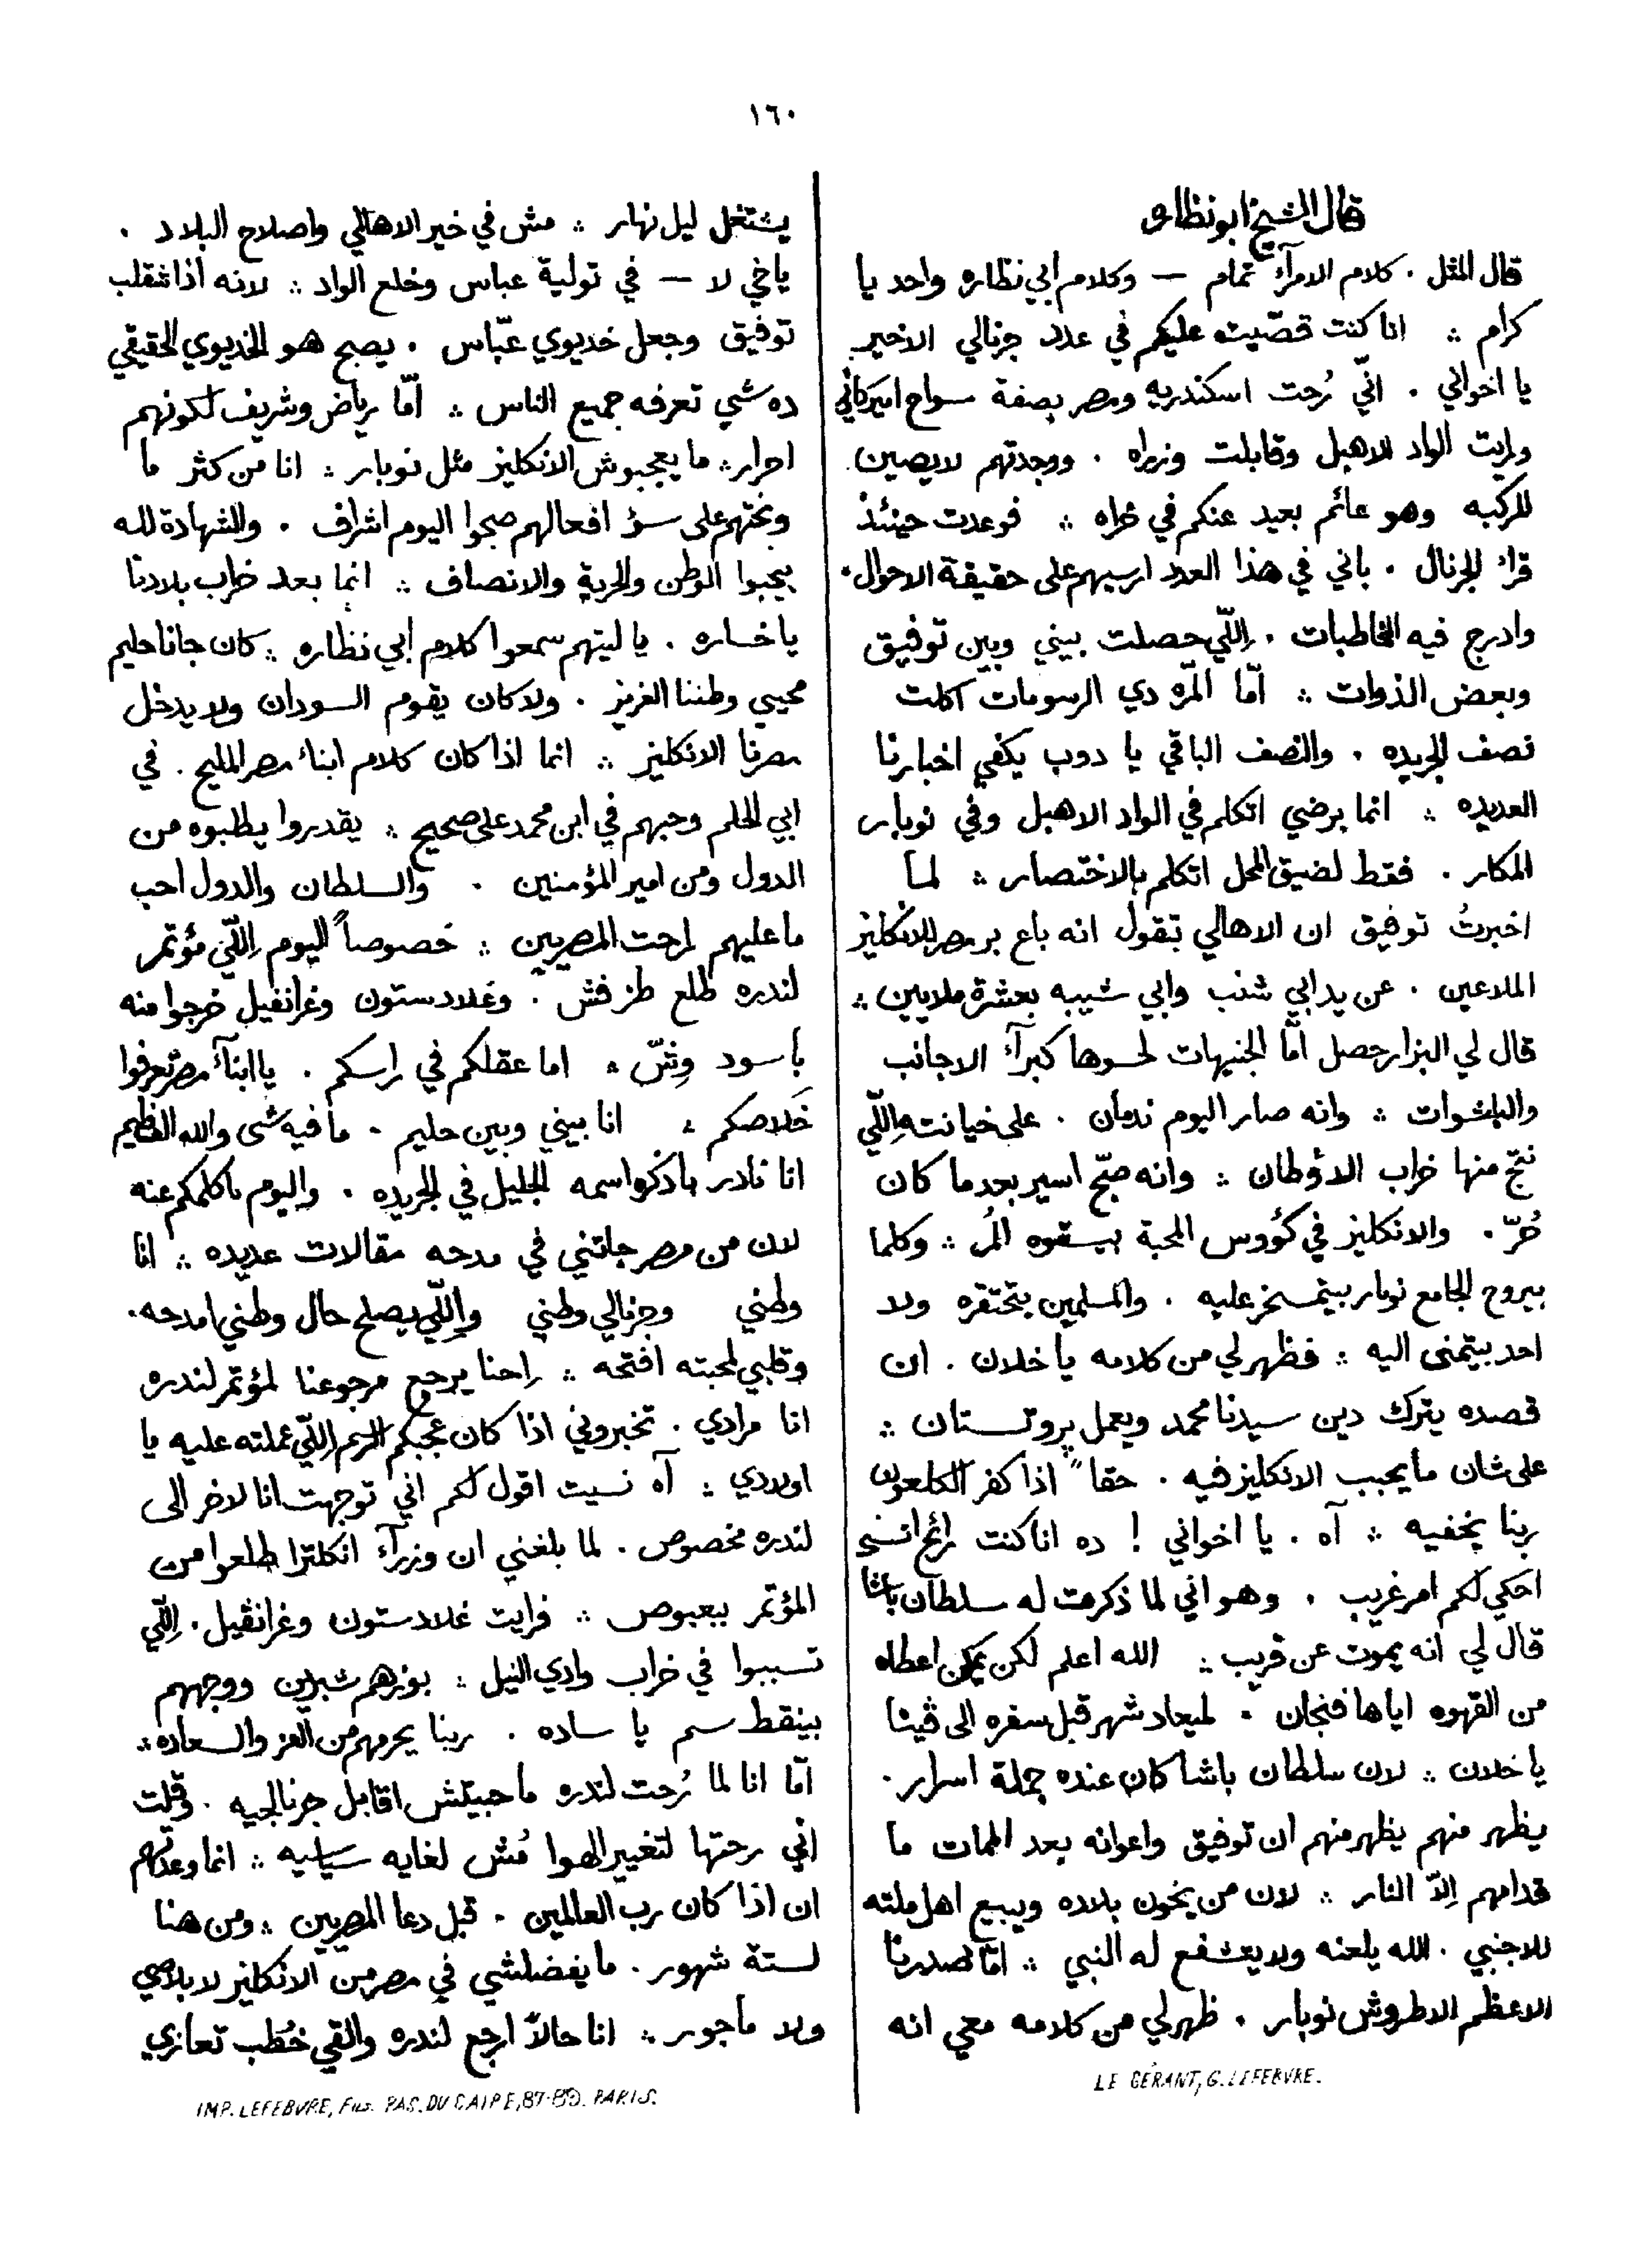 ١٦٠
قال الشيخ ابو نظاره
قال المثل . كلام الامرآء تمام — وكلام ابي نظاره واحد يا
كرام ∴ انا كنت قصّيت عليكم في عدد جرنالي الاخير
يا اخواني . انّي رُحت اسكندريه ومصر بصفة سواح اميركاني
ورايت الواد الاهبل وقابلت وزراه . ووجدتهم لايصين
للركبه وهو عائم بعيد عنكم في خراه ∴ فوعدت حينئذ
قراء الجرنال . باني في هذا العدد ارسيهم على حقيقة الاحوال .
وادرج فيه المخاطبات . اللّي حصلت بيني وبين توفيق
وبعض الذوات ∴ امّا المرّه دي الرسومات اكلت
نصف الجريده . والنصف الباقي يا دوب يكفي اخبارنا
العديده ∴ انما برضي اتكلم في الواد الاهبل وفي نوبار
المكار . فقط لضيق المحل اتكلم بالاختصار ∴ لما
اخبرتُ توفيق ان الاهالي تقول انه باع بر مصر للانكليز
الملاعين . عن يد ابي شنب وابي شيبه بعشرة ملايين ∴
قال لي البزار حصل امّا الجنيهات لحسوها كبرآء الاجانب
والباشوات ∴ وانه صار اليوم ندمان . على خيانته اللّي
نتج منها خراب الاوطان ∴ وانه صبّح اسير بعد ما كان
حُرّ . والانكليز في كؤوس المحبة بيسقوه المُر ∴ وكلما
بيروح الجامع نوبار بيتمسخر عليه . والمسلمين بتحتقره ولا
احد بيتمنى اليه ∴ فظهر لي من كلامه يا خلان . ان
قصده يترك دين سيدنا محمد ويعمل بروتستان ∴
على شان ما يحبب الانكليز فيه . حقاً اذا كفر الكلعون
ربنا يخفيه ∴ آه . يا اخواني ! ده انا كنت رائح انسى
احكي لكم امر غريب . وهو اني لما ذكرت له سلطان باشا
قال لي انه يموت عن قريب ∴ الله اعلم لكن يمكن اعطاه
من القهوه اياها فنجان . لميعاد شهر قبل سفره الى ڤينا
يا خلان ∴ لان سلطان باشا كان عنده جملة اسرار .
يظهر منهم يظهر منهم ان توفيق واعوانه بعد الممات ما
قدامهم الاّ النار ∴ لان من يخون بلاده ويبيع اهل ملته
للاجنبي . الله يلعنه ولا يشفع له النبي ∴ امّا لصدرنا
الاعظم الاطروش نوبار . ظهر لي من كلامه معي انه
LE GÉRANT, G. LEFEBVRE.
يشتغل ليل نهار ∴ مش في خير الاهالي واصلاح البلاد .
ياخي لا — في تولية عباس وخلع الواد ∴ لانه اذا شقلب
توفيق وجعل خديوي عبّاس . يصبح هو الخديوي الحقيقي
ده شي تعرفه جميع الناس ∴ امّا رياض وشريف لكونهم
احرار ∴ ما يعجبوش الانكليز مثل نوبار ∴ انا من كثر ما
وبختهم على سؤ افعالهم صبحوا اليوم اشراف . والشهادة لله
بيحبوا الوطن والحرية والانصاف ∴ انما بعد خراب بلادنا
يا خساره . يا ليتهم سمعوا كلام ابي نظاره ∴ كان جانا حليم
محيي وطننا العزيز . ولا كان يقوم السودان ولا يدخل
مصرنا الانكليز ∴ انما اذا كان كلام ابناء مصر المليح . في
ابي الحلم وحبهم في ابن محمد علي صحيح ∴ يقدروا يطلبوه من
الدول ومن امير المؤمنين . والسلطان والدول احب
ما عليهم لراحت المصريين ∴ خصوصاً اليوم اللّي مؤتمر
لندره طلع طز فش . وغلادستون وغرانفيل خرجوا منه
باسود وشّ ∴ اما عقلكم في راسكم . يا ابنآء مصر تعرفوا
خلاصكم ∴ انا بيني وبين حليم . ما فيه شى والله العظيم
انا نادر باذكر اسمه الجليل في الجريده . واليوم باكلمكم عنه
لان من مصر جاتني في مدحه مقالات عديده ∴ انا
وطني وجرنالي وطني واللّي يصلح حال وطني امدحه .
وقلبي لمحبته افتحه ∴ احنا يرجع مرجوعنا لمؤتمر لندره
انا مرادي . تخبروني اذا كان عجبكم الرسم اللّي عملته عليه يا
اولادي ∴ آه نسيت اقول لكم اني توجهت انا لاخر الى
لندره مخصوص . لما بلغني ان وزرآء انكلترا طلعوا من
المؤتمر ببعبوص ∴ فرايت غلادستون وغرانڤيل . اللّي
تسببوا في خراب وادي النيل ∴ بوزهم شبرين ووجههم
بينقط سم يا ساده . ربنا يحرمهم من العز والسعاده ∴
امّا انا لما رُحت لندره ما حبيتش اقابل جرنالجيه . وقلت
اني رحتها لتغيير الهوا مُش لغايه سياسيه ∴ انما وعدتهم
ان اذا كان رب العالمين . قبل دعا المصريين ∴ ومن هنا
لستة شهور . ما يفضلشي في مصر من الانكليز لا بلاصي
ولا ماجور ∴ انا حالاً ارجع لندره والقي خُطب تعازي
IMP. LEFEBVRE, PAS. DU CAIRE, 87-89. PARIS.